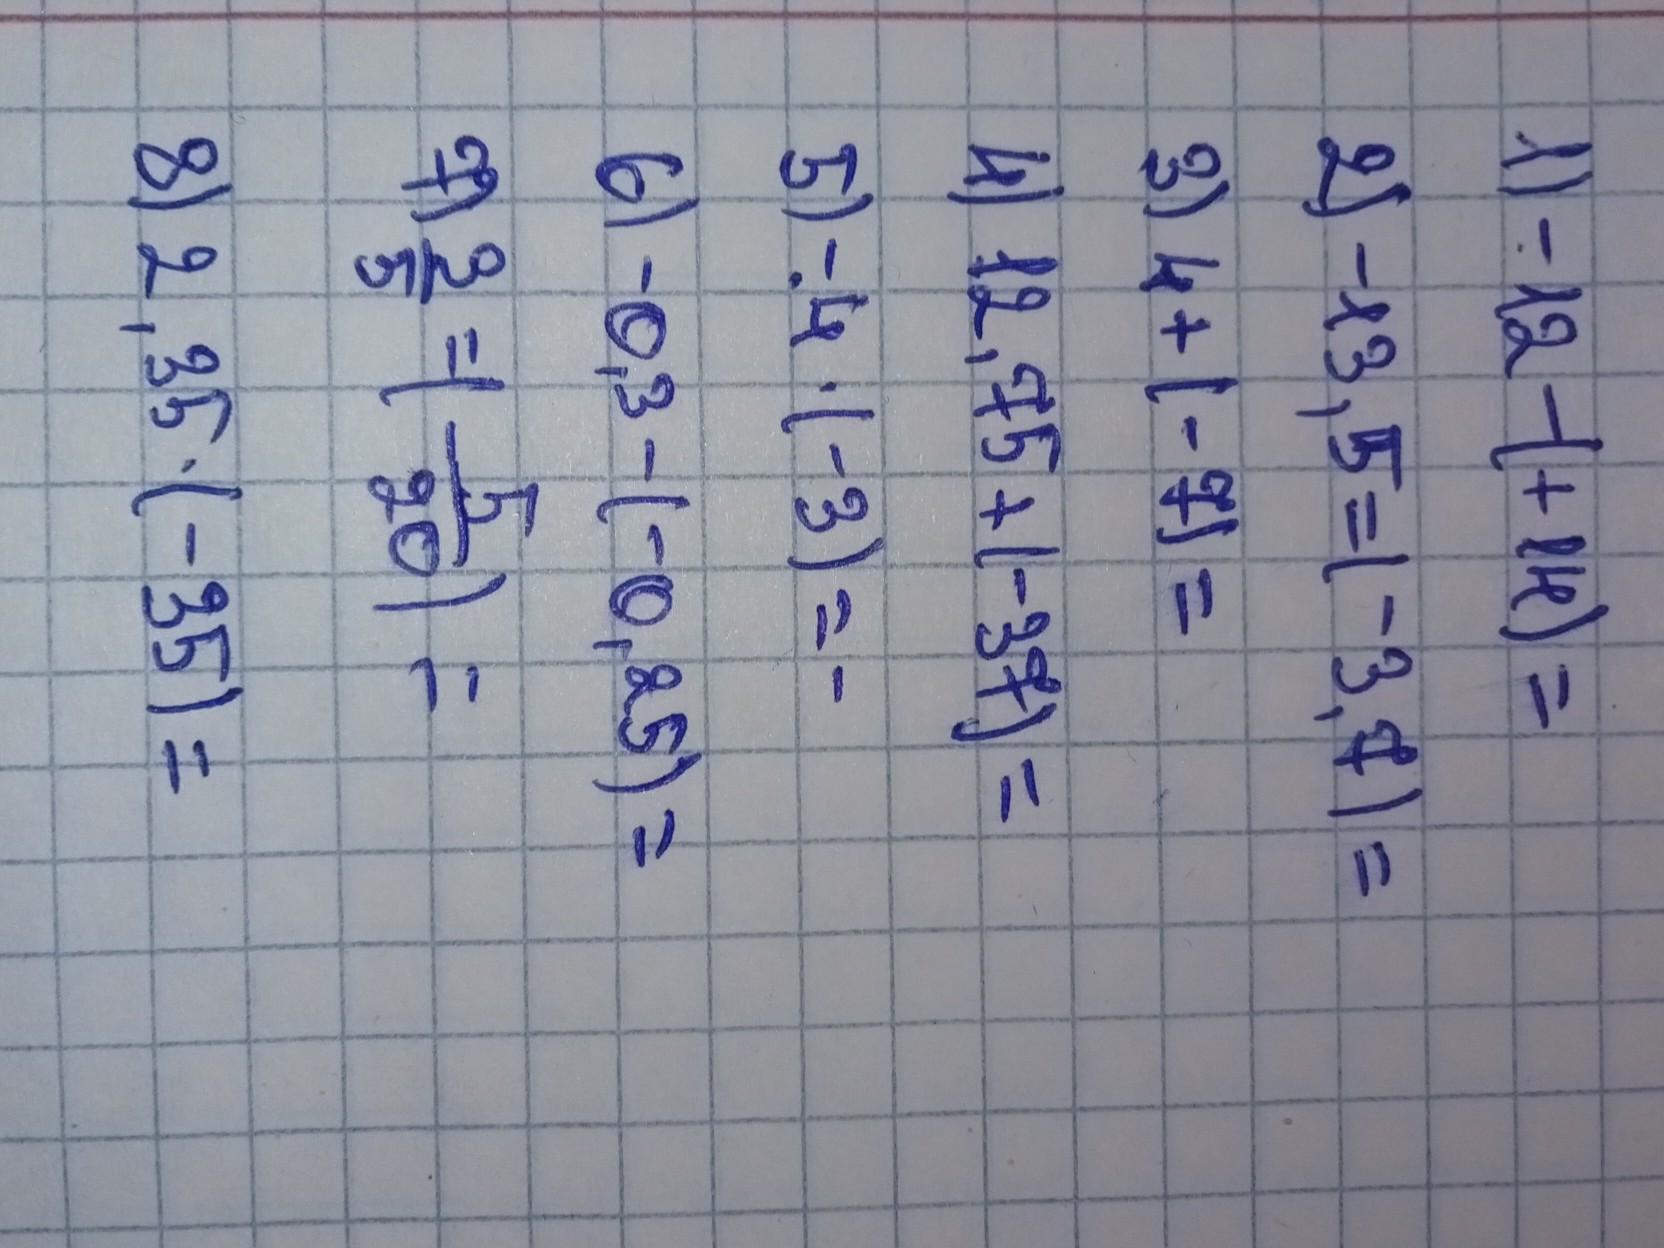 1) -12-(+14)=
2) -13,5=(-3,7)=
3) 4+(-7)=
4) 12,75+(-37)=
5) -4·(-3)=-
6) -0,3-(-0,25)=
7) 2/5=(-5/20)=
8) 2,35·(-35)=